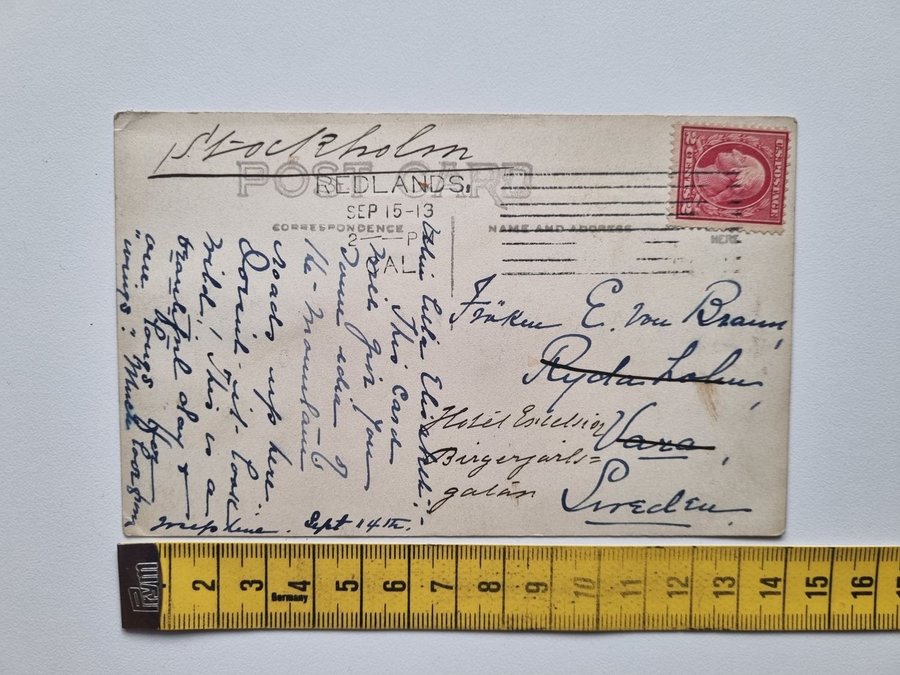 Stockholm
POST CARD
REDLANDS,
SEP 15-13
2 — P
CAL.
CORRESPONDENCE
NAME AND ADDRESS HERE
U.S. POSTAGE
2 CENTS 2
Fröken E. von Braun,
Rydaholm,
Vara,
Sweden.
Hotel Excelsior
Birgerjarls=
gatan
lilla Elisabeth:-
This card
will give you
some idea of
the mountain
roads up here
Doesn't it look
wild! This is a
beautiful day &
one longs for
"wings". Much love from
Josephine. Sept 14th.
Prym
Germany
2 3 4 5 6 7 8 9 10 11 12 13 14 15 16